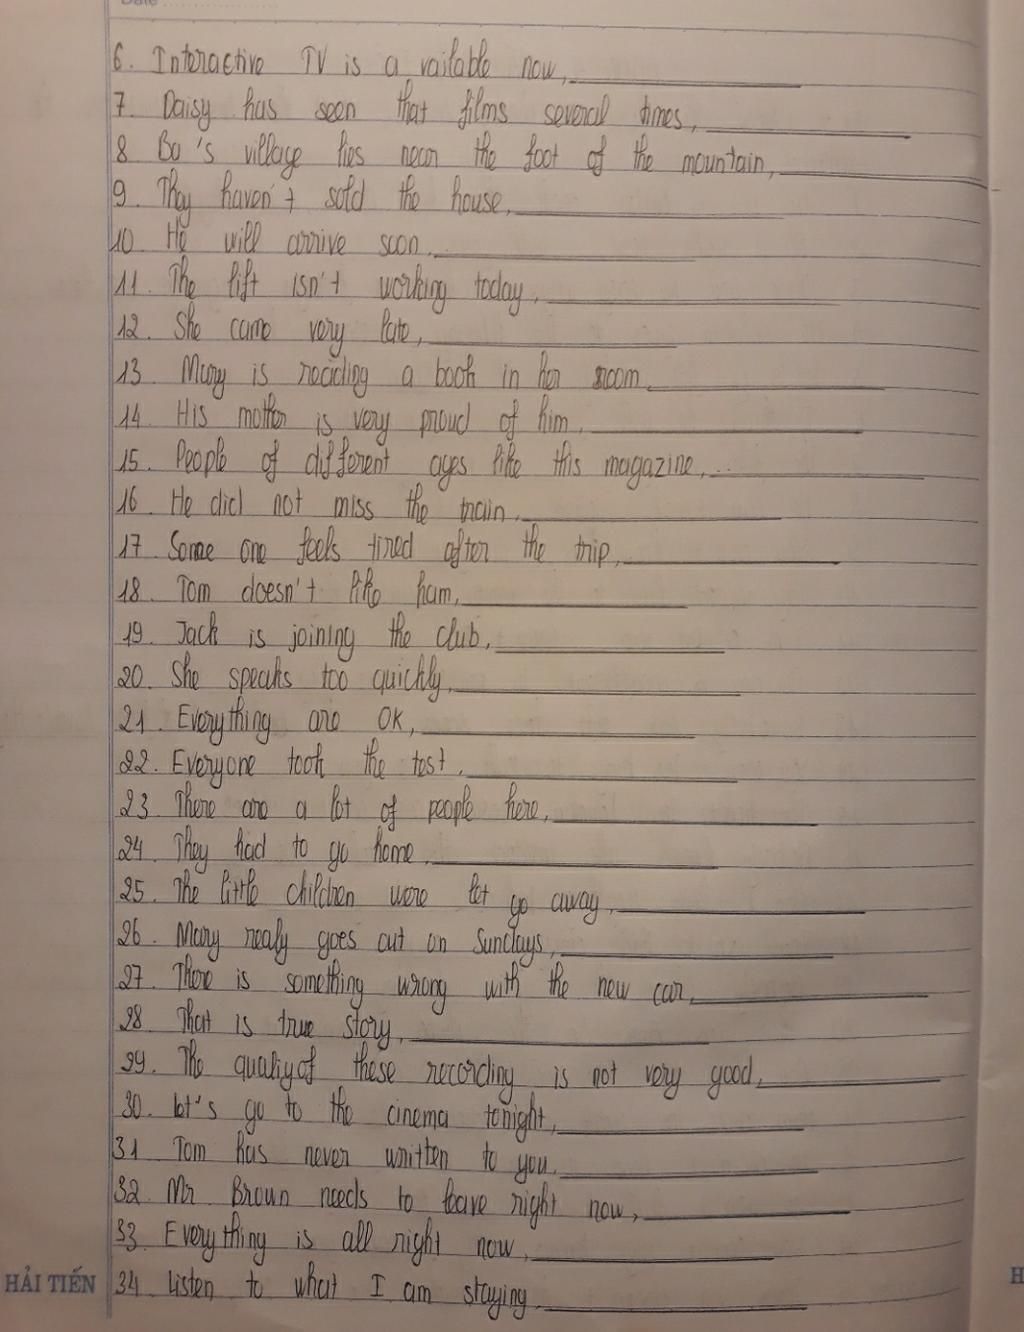 Date
6. Interactive TV is a vailable now,
7. Daisy has seen that films several times,
8. Ba's village lies near the foot of the mountain,
9. They haven't sold the house,
10. He will arrive soon,
11. The lift isn't working today,
12. She came very late,
13. Mary is reading a book in her room,
14. His mother is very proud of him,
15. People of different ages like this magazine,
16. He did not miss the train,
17. Some one feels tired after the trip,
18. Tom doesn't like ham,
19. Jack is joining the club,
20. She speaks too quickly,
21. Everything are OK,
22. Everyone took the test,
23. There are a lot of people here,
24. They had to go home,
25. The little children were let go away,
26. Mary realy goes out on Sundays,
27. There is something wrong with the new car,
28. That is true story,
29. The qualiyof these recording is not very good,
30. let's go to the cinema tonight,
31. Tom has never written to you,
32. Mr Broun needs to leave right now,
33. Everything is all right now,
HẢI TIẾN 34. listen to what I am staying,